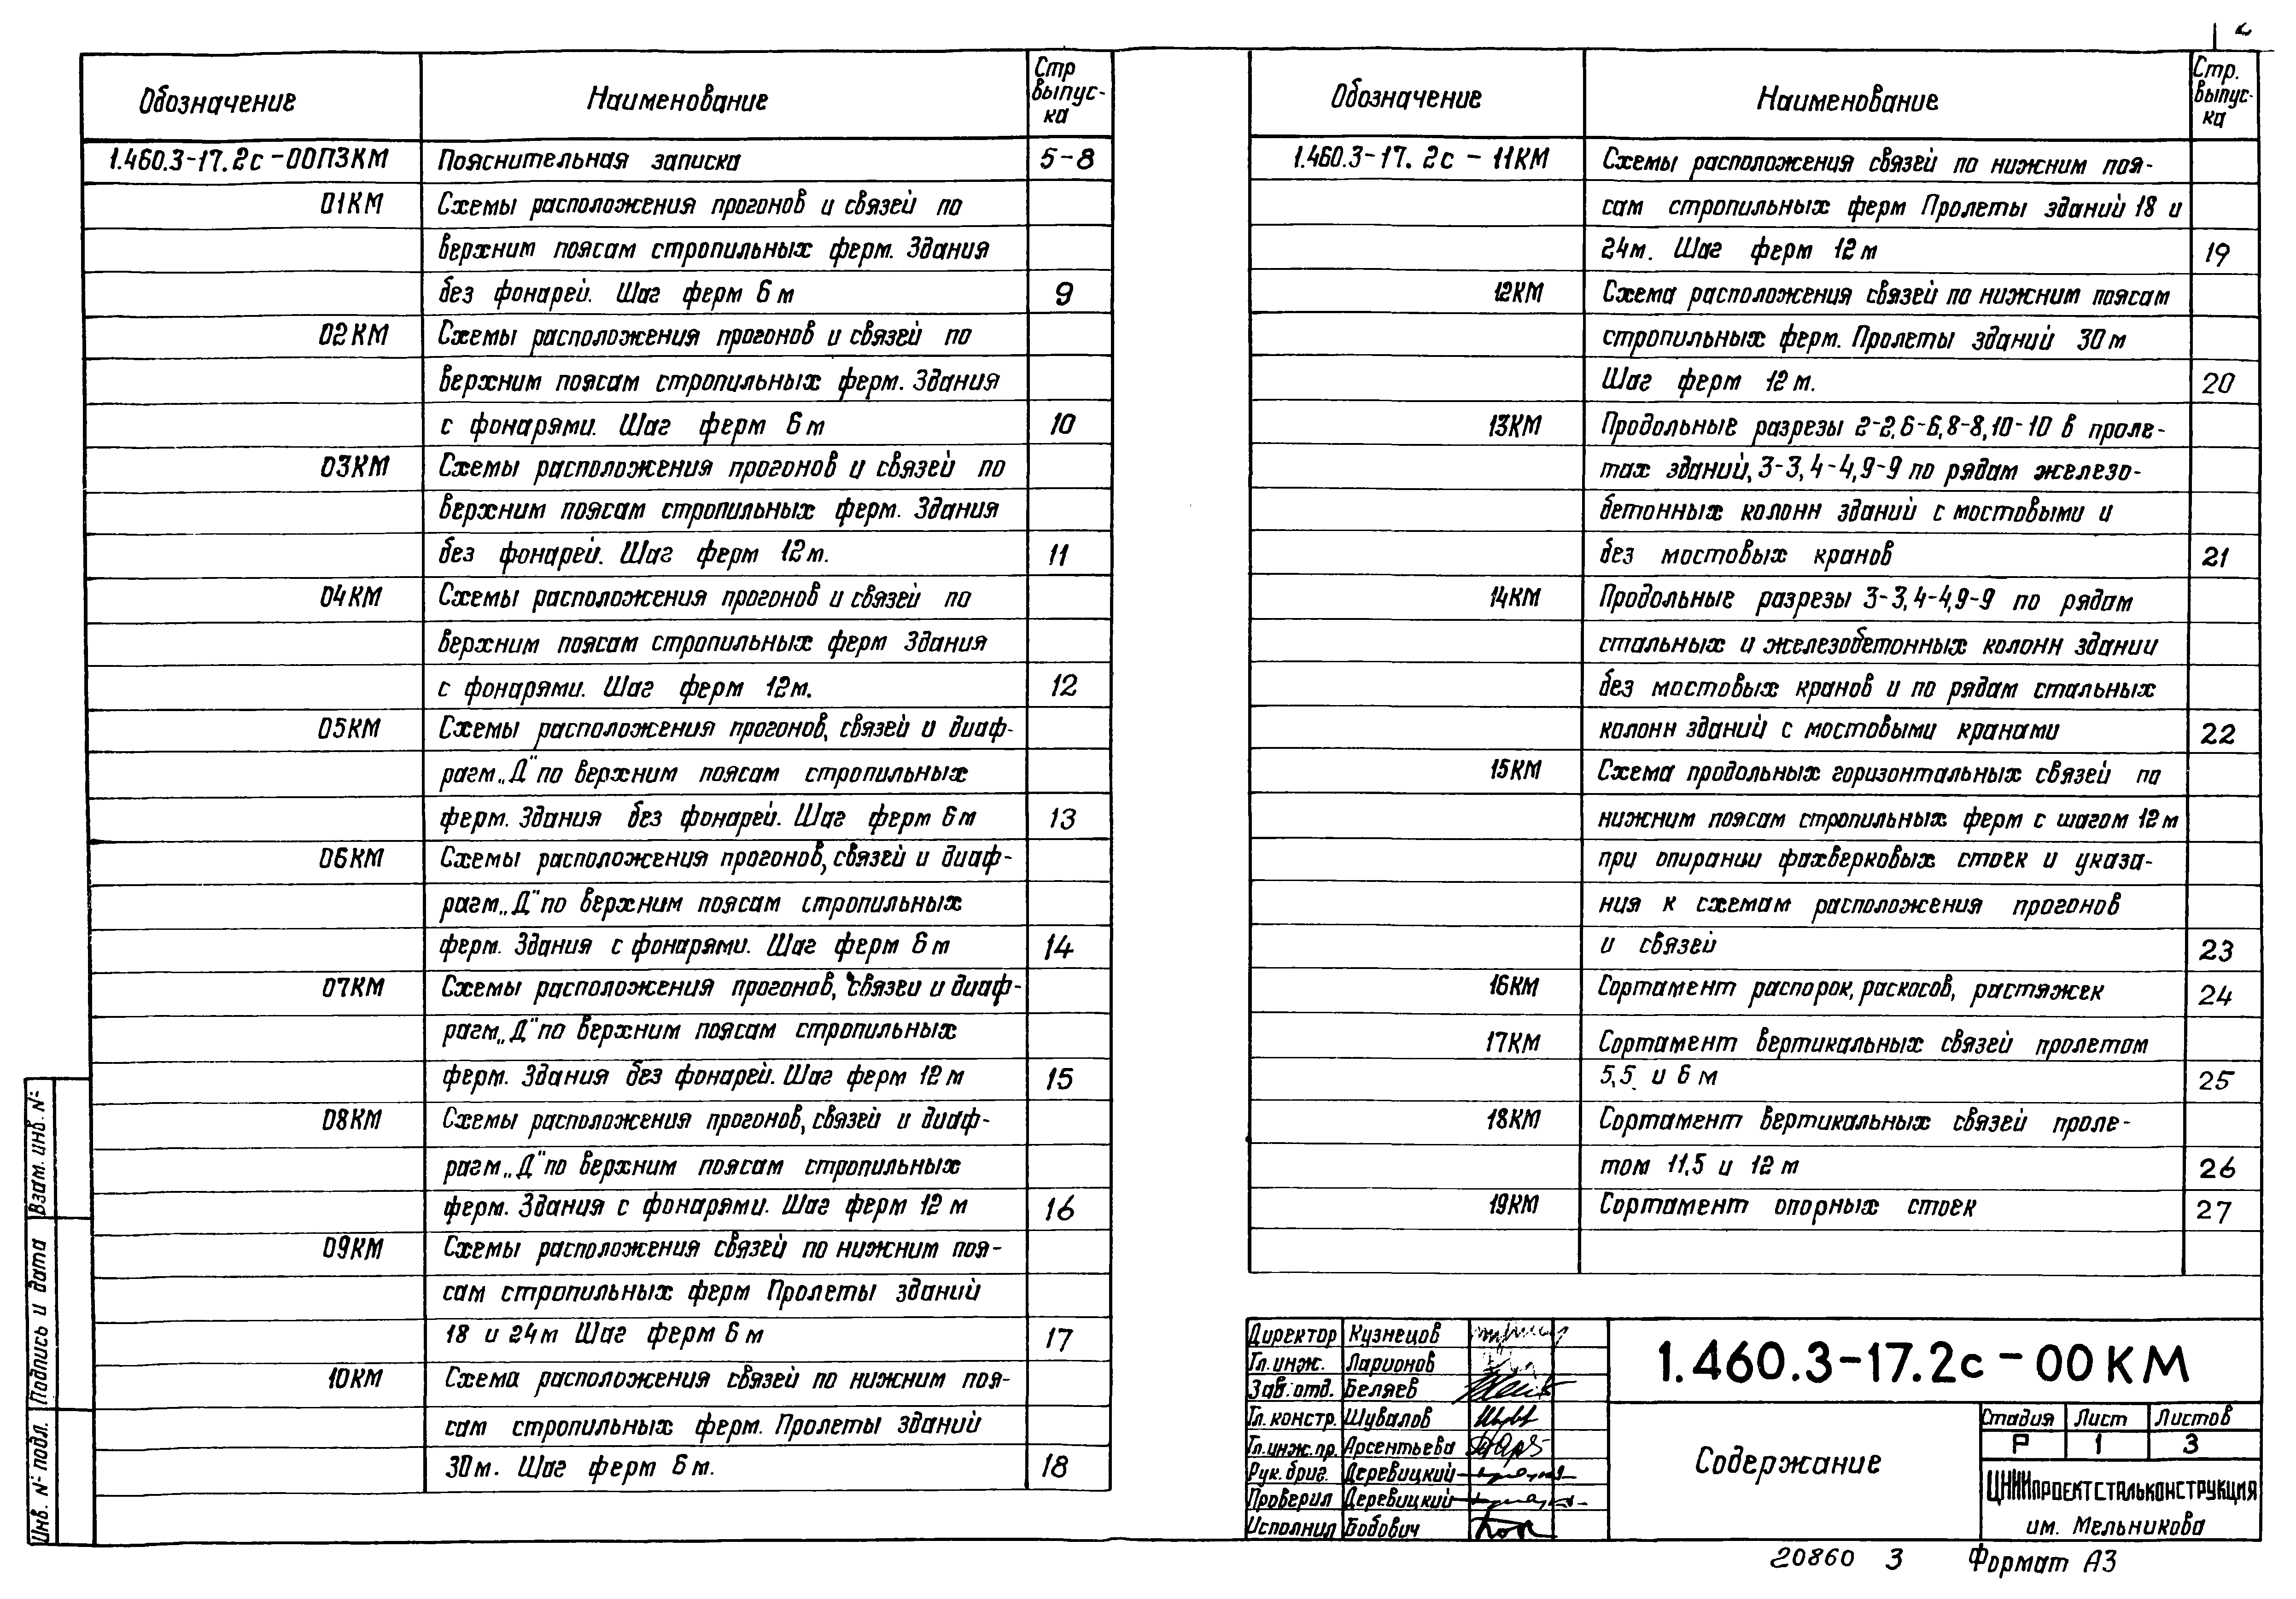 2
Обозначение
Наименование
Стр
выпус-
ка
1.460.3-17.2с-00ПЗКМ Пояснительная записка 5-8
01КМ Схемы расположения прогонов и связей по
верхним поясам стропильных ферм. Здания
без фонарей. Шаг ферм 6 м 9
02КМ Схемы расположения прогонов и связей по
верхним поясам стропильных ферм. Здания
с фонарями. Шаг ферм 6 м 10
03КМ Схемы расположения прогонов и связей по
верхним поясам стропильных ферм. Здания
без фонарей. Шаг ферм 12 м. 11
04КМ Схемы расположения прогонов и связей по
верхним поясам стропильных ферм Здания
с фонарями. Шаг ферм 12 м. 12
05КМ Схемы расположения прогонов, связей и диаф-
рагм „Д" по верхним поясам стропильных
ферм. Здания без фонарей. Шаг ферм 6 м 13
06КМ Схемы расположения прогонов, связей и диаф-
рагм „Д" по верхним поясам стропильных
ферм. Здания с фонарями. Шаг ферм 6 м 14
07КМ Схемы расположения прогонов, связеи и диаф-
рагм „Д" по верхним поясам стропильных
ферм. Здания без фонарей. Шаг ферм 12 м 15
08КМ Схемы расположения прогонов, связей и диаф-
рагм „Д" по верхним поясам стропильных
ферм. Здания с фонарями. Шаг ферм 12 м 16
09КМ Схемы расположения связей по нижним поя-
сам стропильных ферм Пролеты зданий
18 и 24 м Шаг ферм 6 м 17
10КМ Схема расположения связей по нижним поя-
сам стропильных ферм. Пролеты зданий
30 м. Шаг ферм 6 м. 18
Обозначение
Наименование
Стр.
выпус-
ка
1.460.3-17.2с-11КМ Схемы расположения связей по нижним поя-
сам стропильных ферм Пролеты зданий 18 и
24 м. Шаг ферм 12 м 19
12КМ Схема расположения связей по нижним поясам
стропильных ферм. Пролеты зданий 30 м
Шаг ферм 12 м. 20
13КМ Продольные разрезы 2-2, 6-6, 8-8, 10-10 в проле-
тах зданий, 3-3, 4-4, 9-9 по рядам железо-
бетонных колонн зданий с мостовыми и
без мостовых кранов 21
14КМ Продольные разрезы 3-3, 4-4, 9-9 по рядам
стальных и железобетонных колонн здании
без мостовых кранов и по рядам стальных
колонн зданий с мостовыми кранами 22
15КМ Схема продольных горизонтальных связей по
нижним поясам стропильных ферм с шагом 12 м
при опирании фахверковых стоек и указа-
ния к схемам расположения прогонов
и связей 23
16КМ Сортамент распорок, раскосов, растяжек 24
17КМ Сортамент вертикальных связей пролетом
5,5 и 6 м 25
18КМ Сортамент вертикальных связей проле-
том 11,5 и 12 м 26
19КМ Сортамент опорных стоек 27
Взам. инв. №
Подпись и дата
Инв. № подл.
Директор Кузнецов
Гл. инж. Ларионов
Зав. отд. Беляев
Гл. констр. Шувалов
Гл. инж. пр. Арсентьева
Рук. бриг. Деревицкий
Проверил Деревицкий
Исполнил Бобович
1.460.3-17.2с-00КМ
Содержание
Стадия Лист Листов
Р 1 3
ЦНИИПРОЕКТСТАЛЬКОНСТРУКЦИЯ
им. Мельникова
20860 3 Формат А3